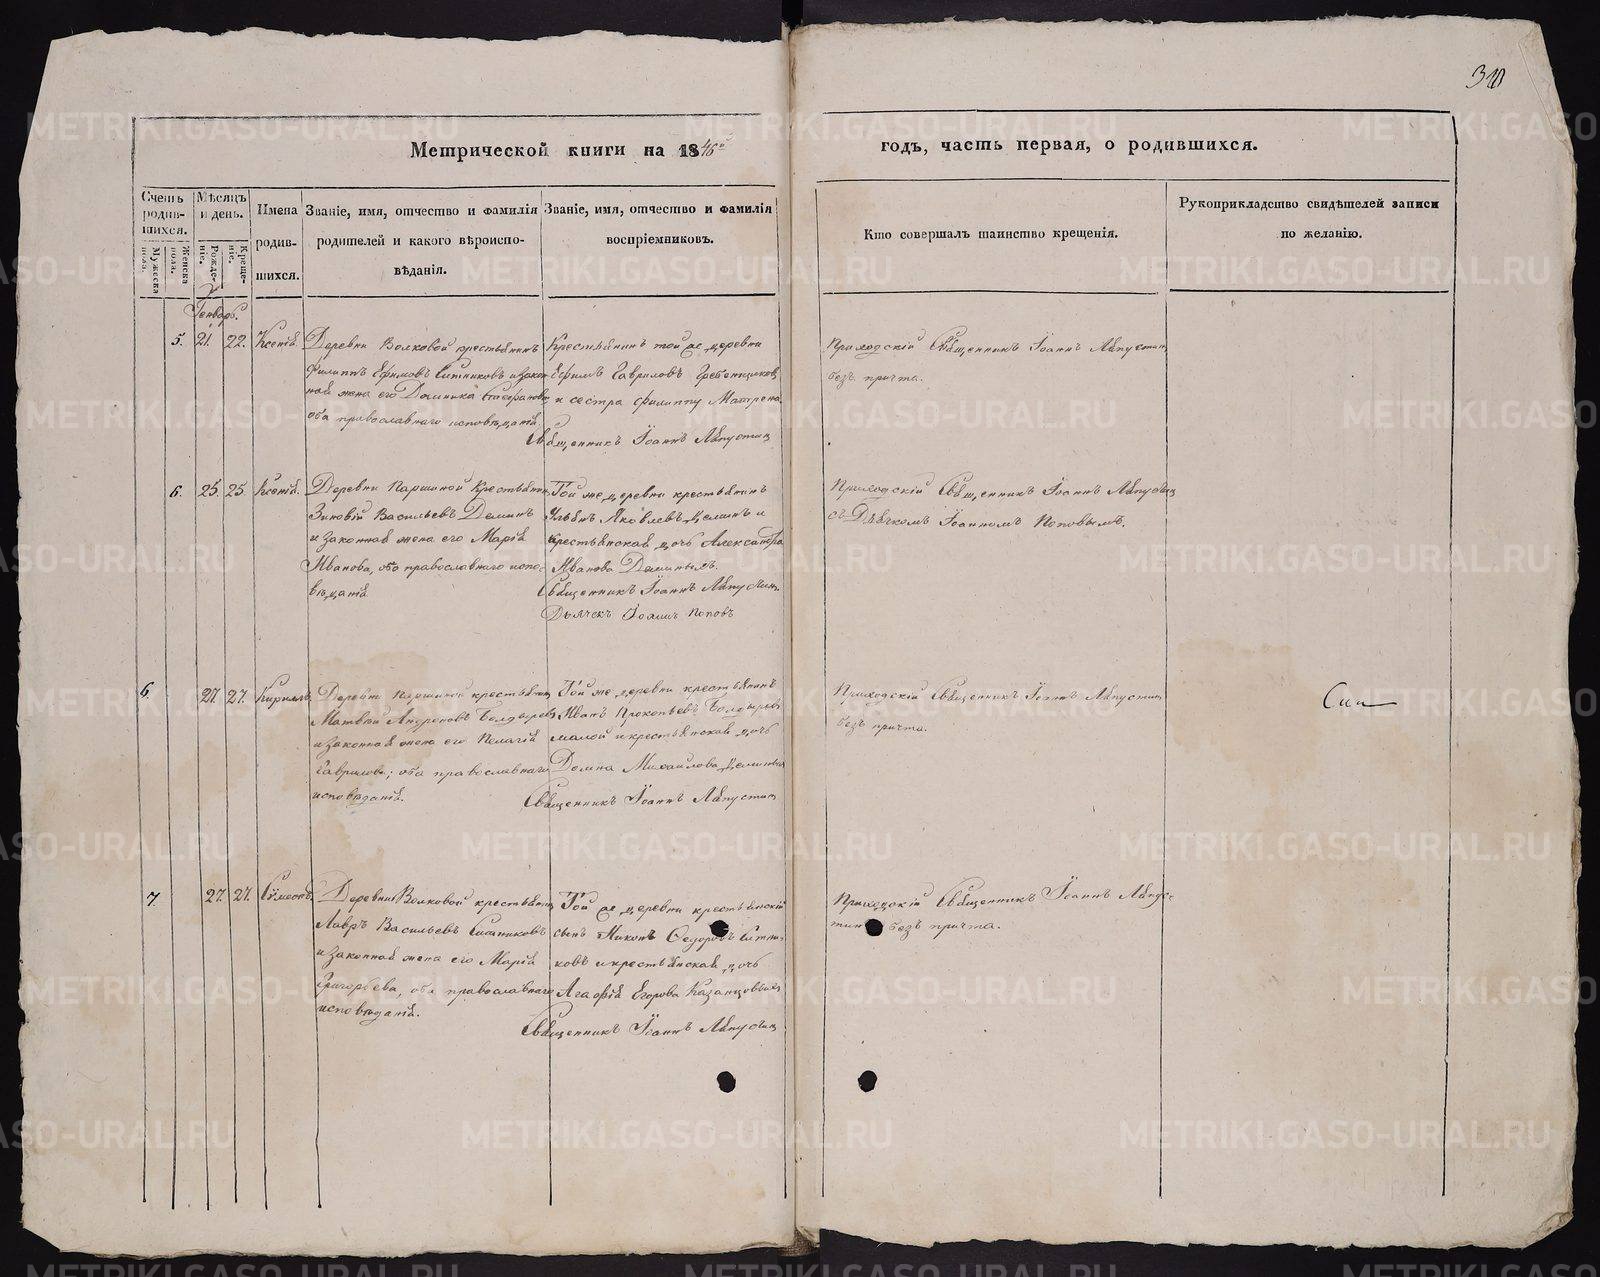 310
Метрической книги на 1846й
годъ, часть первая, о родившихся.
Счетъ родив-шихся.
Мужеска пола.
Женска пола.
Мѣсяцъ и день.
Рожде-ніе.
Креще-ніе.
Имена родив-шихся.
Званіе, имя, отчество и фамилія
родителей и какого вѣроиспо-
вѣданія.
Званіе, имя, отчество и фамилія
воспріемниковъ.
Кто совершалъ таинство крещенія.
Рукоприкладство свидѣтелей записи
по желанію.
Генварь.
5. 21. 22. Ксенія.
Деревни Волковой крестьянинъ
Филиппъ Ефимовъ Ситниковъ и закон-
ная жена его Домника
оба православнаго исповѣданія
Крестьянинъ той же деревни
Ефимъ Гавриловъ Гребенщиковъ
и сестра Филиппу Матрена.
Священникъ Іоаннъ Ляпустин
Приходскій Священникъ Іоаннъ Ляпустин
безъ причта.
6. 25. 25. Ксенія.
Деревни Паршиной Крестьянин
Зиновій Васильевъ Деминъ
и законная жена его Марія
Иванова, оба православнаго испо-
вѣданія
Той же деревни крестьянинъ
Ульянъ Яковлевъ и
крестьянская дочь Александра
Иванова Деминыхъ.
Священникъ Іоаннъ Ляпустин
Дьячекъ Іоаннъ Поповъ
Приходскій Священникъ Іоаннъ Ляпустин
съ Дьячкомъ Іоанномъ Поповымъ.
6. 27. 27. Кириллъ.
Деревни Паршиной крестьянин
Матвѣй Андроновъ Болдыревъ
и законная жена его Пелагія
Гаврилова; оба православнаго
исповѣданія.
Той же деревни крестьянинъ
Иванъ Прокопьевъ Болдыревъ
малой и крестьянская дочь
Домна Михайлова
Священникъ Іоаннъ Ляпустин
Приходскій Священникъ Іоаннъ Ляпустин
безъ причта.
7. 27. 27. Сѵмеонъ.
Деревни Волковой крестьянин
Лавръ Васильевъ Ситниковъ
и законная жена его Марія
Григорьева, оба православнаго
исповѣданія.
Той же деревни крестьянскій
сынъ Никонъ Ѳедоровъ Ситни-
ковъ и крестьянская дочь
Агафія Егорова Казанцовыхъ
Священникъ Іоаннъ Ляпустин
Приходскій Священникъ Іоаннъ Ляпус-
тин безъ причта.
METRIKI.GASO-URAL.RU